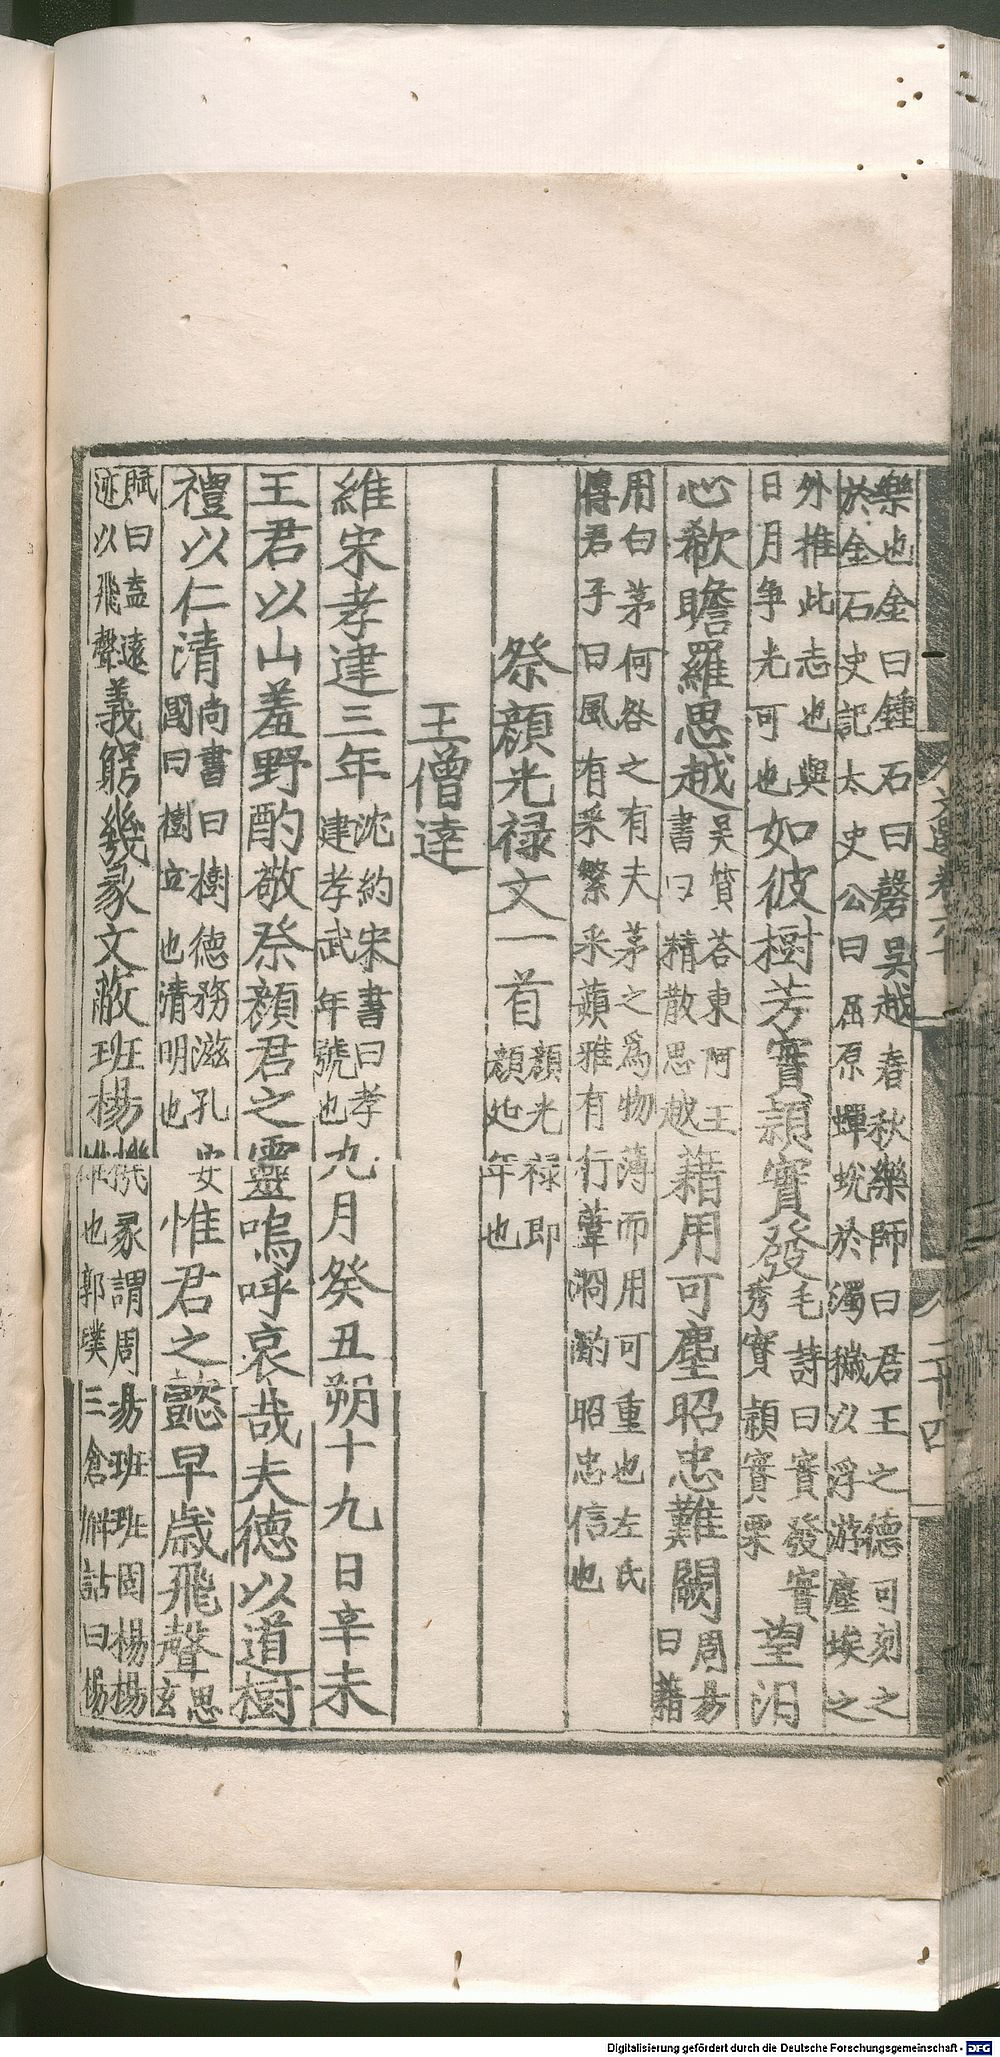 樂也金曰鍾石曰磬吳越春秋樂師曰君王之德可刻之
於金石史記太史公曰屈原蟬蛻於濁穢以浮游塵埃之
外推此志也與
日月爭光可也
如彼樹芳實穎實發
毛詩曰實發實
秀實穎實栗
望汨
心欷瞻羅思越
吳質荅東阿王
書曰精散思越
藉用可塵昭忠難闕
周易
曰藉
用白茅何咎之有夫茅之爲物薄而用可重也左氏
傳君子曰風有采蘩采蘋雅有行葦泂酌昭忠信也
祭顏光祿文一首
顏光祿即
顏延年也
王僧達
維宋孝建三年
沈約宋書曰孝
建孝武年號也
九月癸丑朔十九日辛未
王君以山羞野酌敬祭顏君之靈嗚呼哀哉夫德以道樹
禮以仁清
尚書曰樹德務滋孔安
國曰樹立也清明也
惟君之懿早歲飛聲
思
玄
賦曰盍遠
迹以飛聲
義窮幾彖文蔽班楊
幾彖謂周易班班固楊楊
雄也郭璞三倉解詁曰楊
文選卷六十
二十四
Digitalisierung gefördert durch die Deutsche Forschungsgemeinschaft - DFG